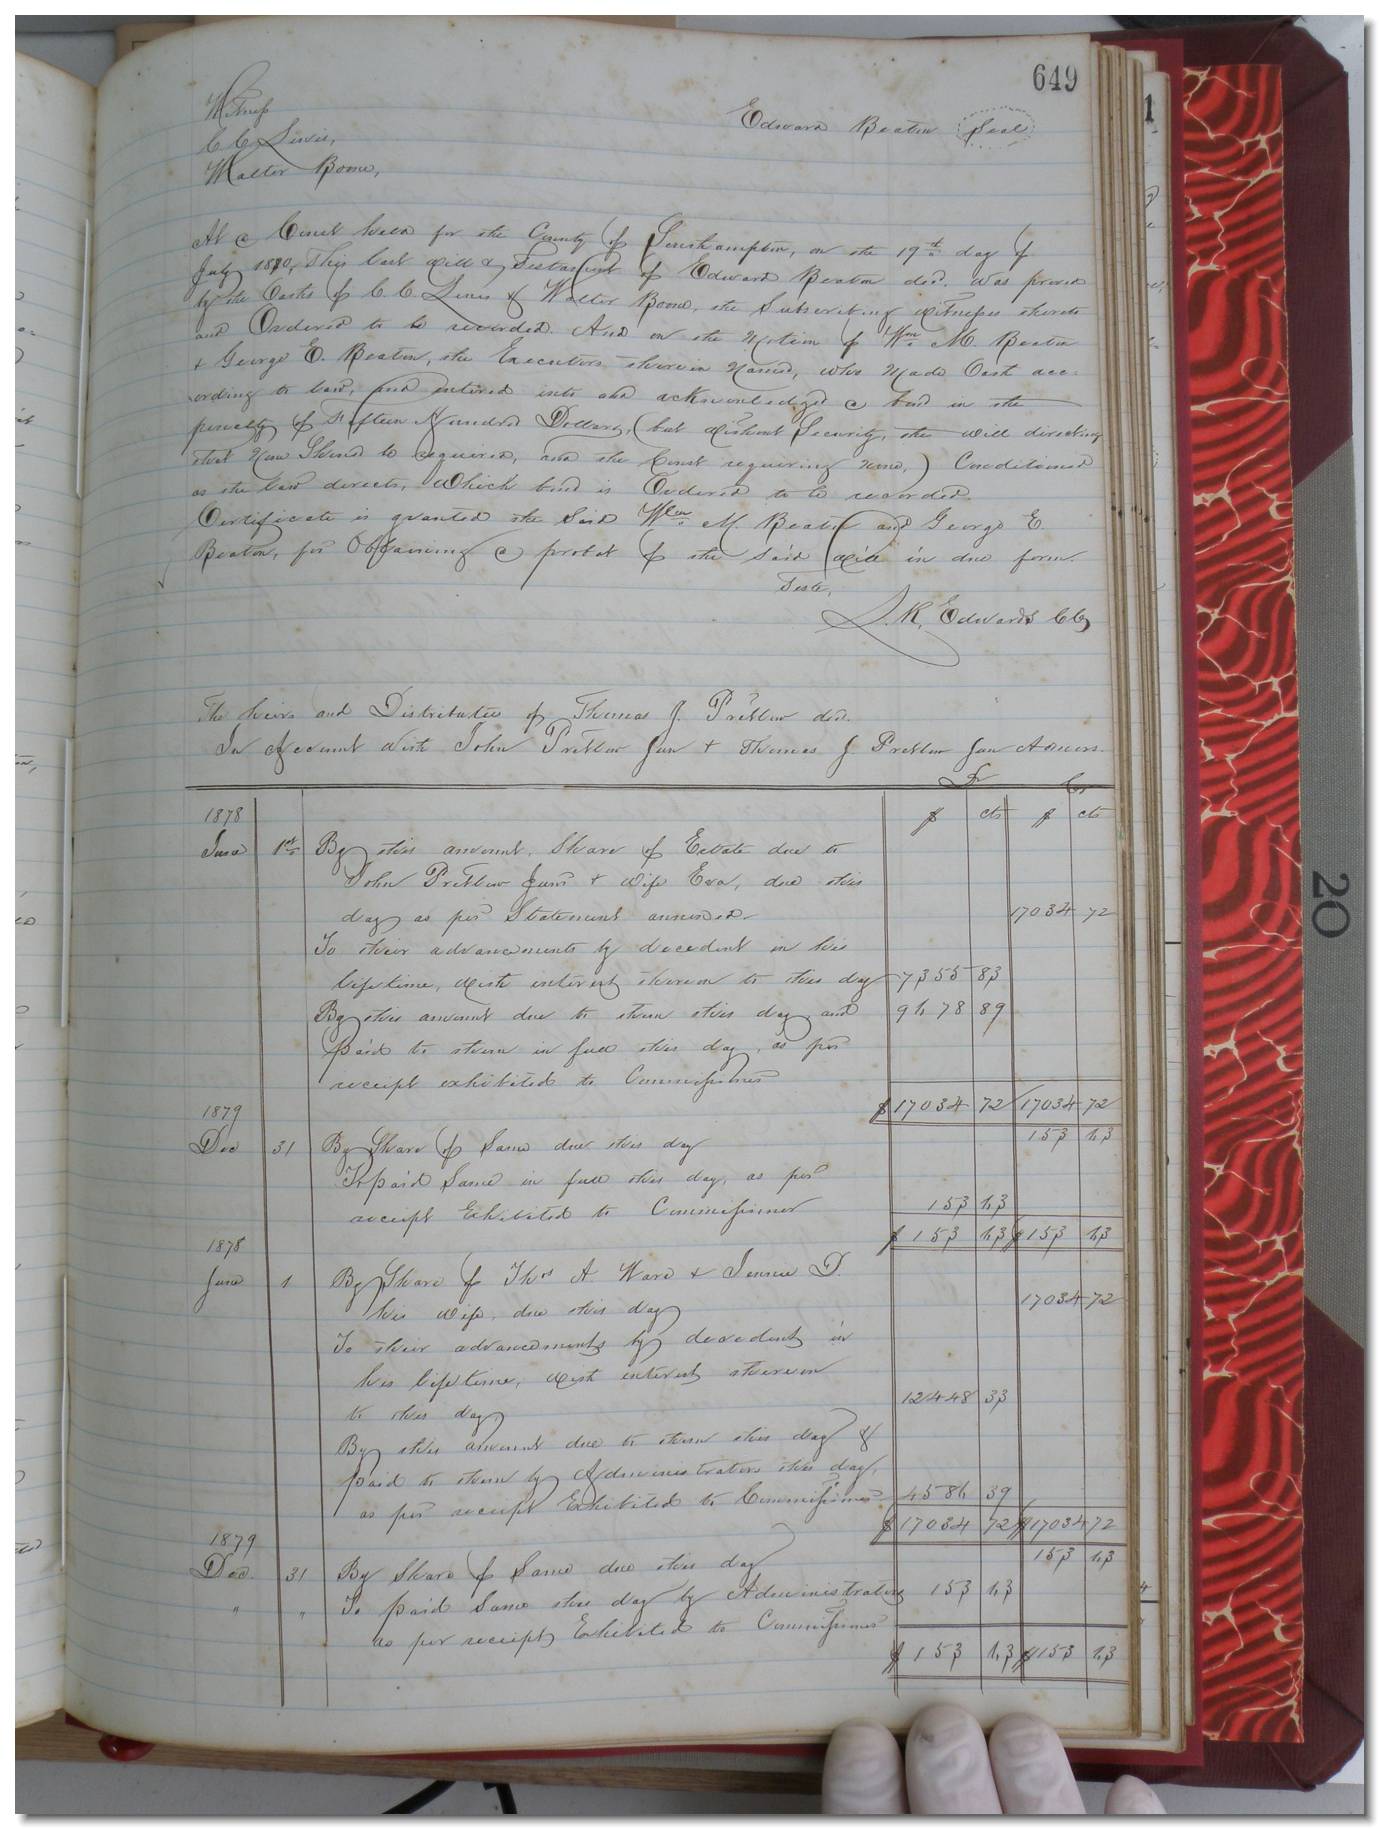 649
Witness
Edward Beaton Seal
C C Lewis,
Walter Boone,
At a Court held for the County of Southampton, on the 19th day of
July 1880, This last will & Testament of Edward Beaton decd. was proved
by the Oaths of C. C. Lewis & Walter Boone, the Subscribing witnesses thereto
and Ordered to be recorded. And on the Motion of Wm. M. Beaton
& George E. Beaton, the Executors therein Named, who Made Oath acc-
ording to law, and entered into and acknowledged a bond in the
penalty of Fifteen Hundred Dollars, (but without Security, the will directing
that None Should be required, and the Court requiring none,) Conditioned
as the law directs, Which bond is Ordered to be recorded.
Certificate is granted the Said Wm. M Beaton and George E
Beaton, for Obtaining a probat of the said will in due form.
Teste,
L. R. Edwards CC
The heirs and Distributees of Thomas J. Pretlow decd.
In Account with John Pretlow Jun & Thomas J Pretlow Jun Admors.
Dr Cr
1878 $ cts $ cts
June 1st By this amount, Share of Estate due to
John Pretlow Junr & wife Eva, due this
day as per Statement annexed 17034 72
To their advancements by decedent in his
lifetime, with interest thereon to this day 7355 83
By this amount due to them this day, and 9678 89
paid to them in full this day, as per
receipt exhibited to Commissioner
$17034 72 17034 72
1879
Dec 31 By Share of Same due this day 153 63
To paid Same in full this day, as per
receipt Exhibited to Commissioner 153 63
$153 63 $153 63
1878
June 1 By Share of Thos A Ward & Jennie D.
his wife, due this day 17034 72
To their advancements by decedent in
his lifetime, with interest thereon
to this day 12448 33
By this amount due to them this day &
paid to them by Administrators this day,
as per receipt Exhibited to Commissioner 4586 39
$17034 72 $17034 72
1879
Dec. 31 By Share of Same due this day 153 63
" " To paid Same this day by Administrators 153 63
as per receipt Exhibited to Commissioner
$153 63 $153 63
20